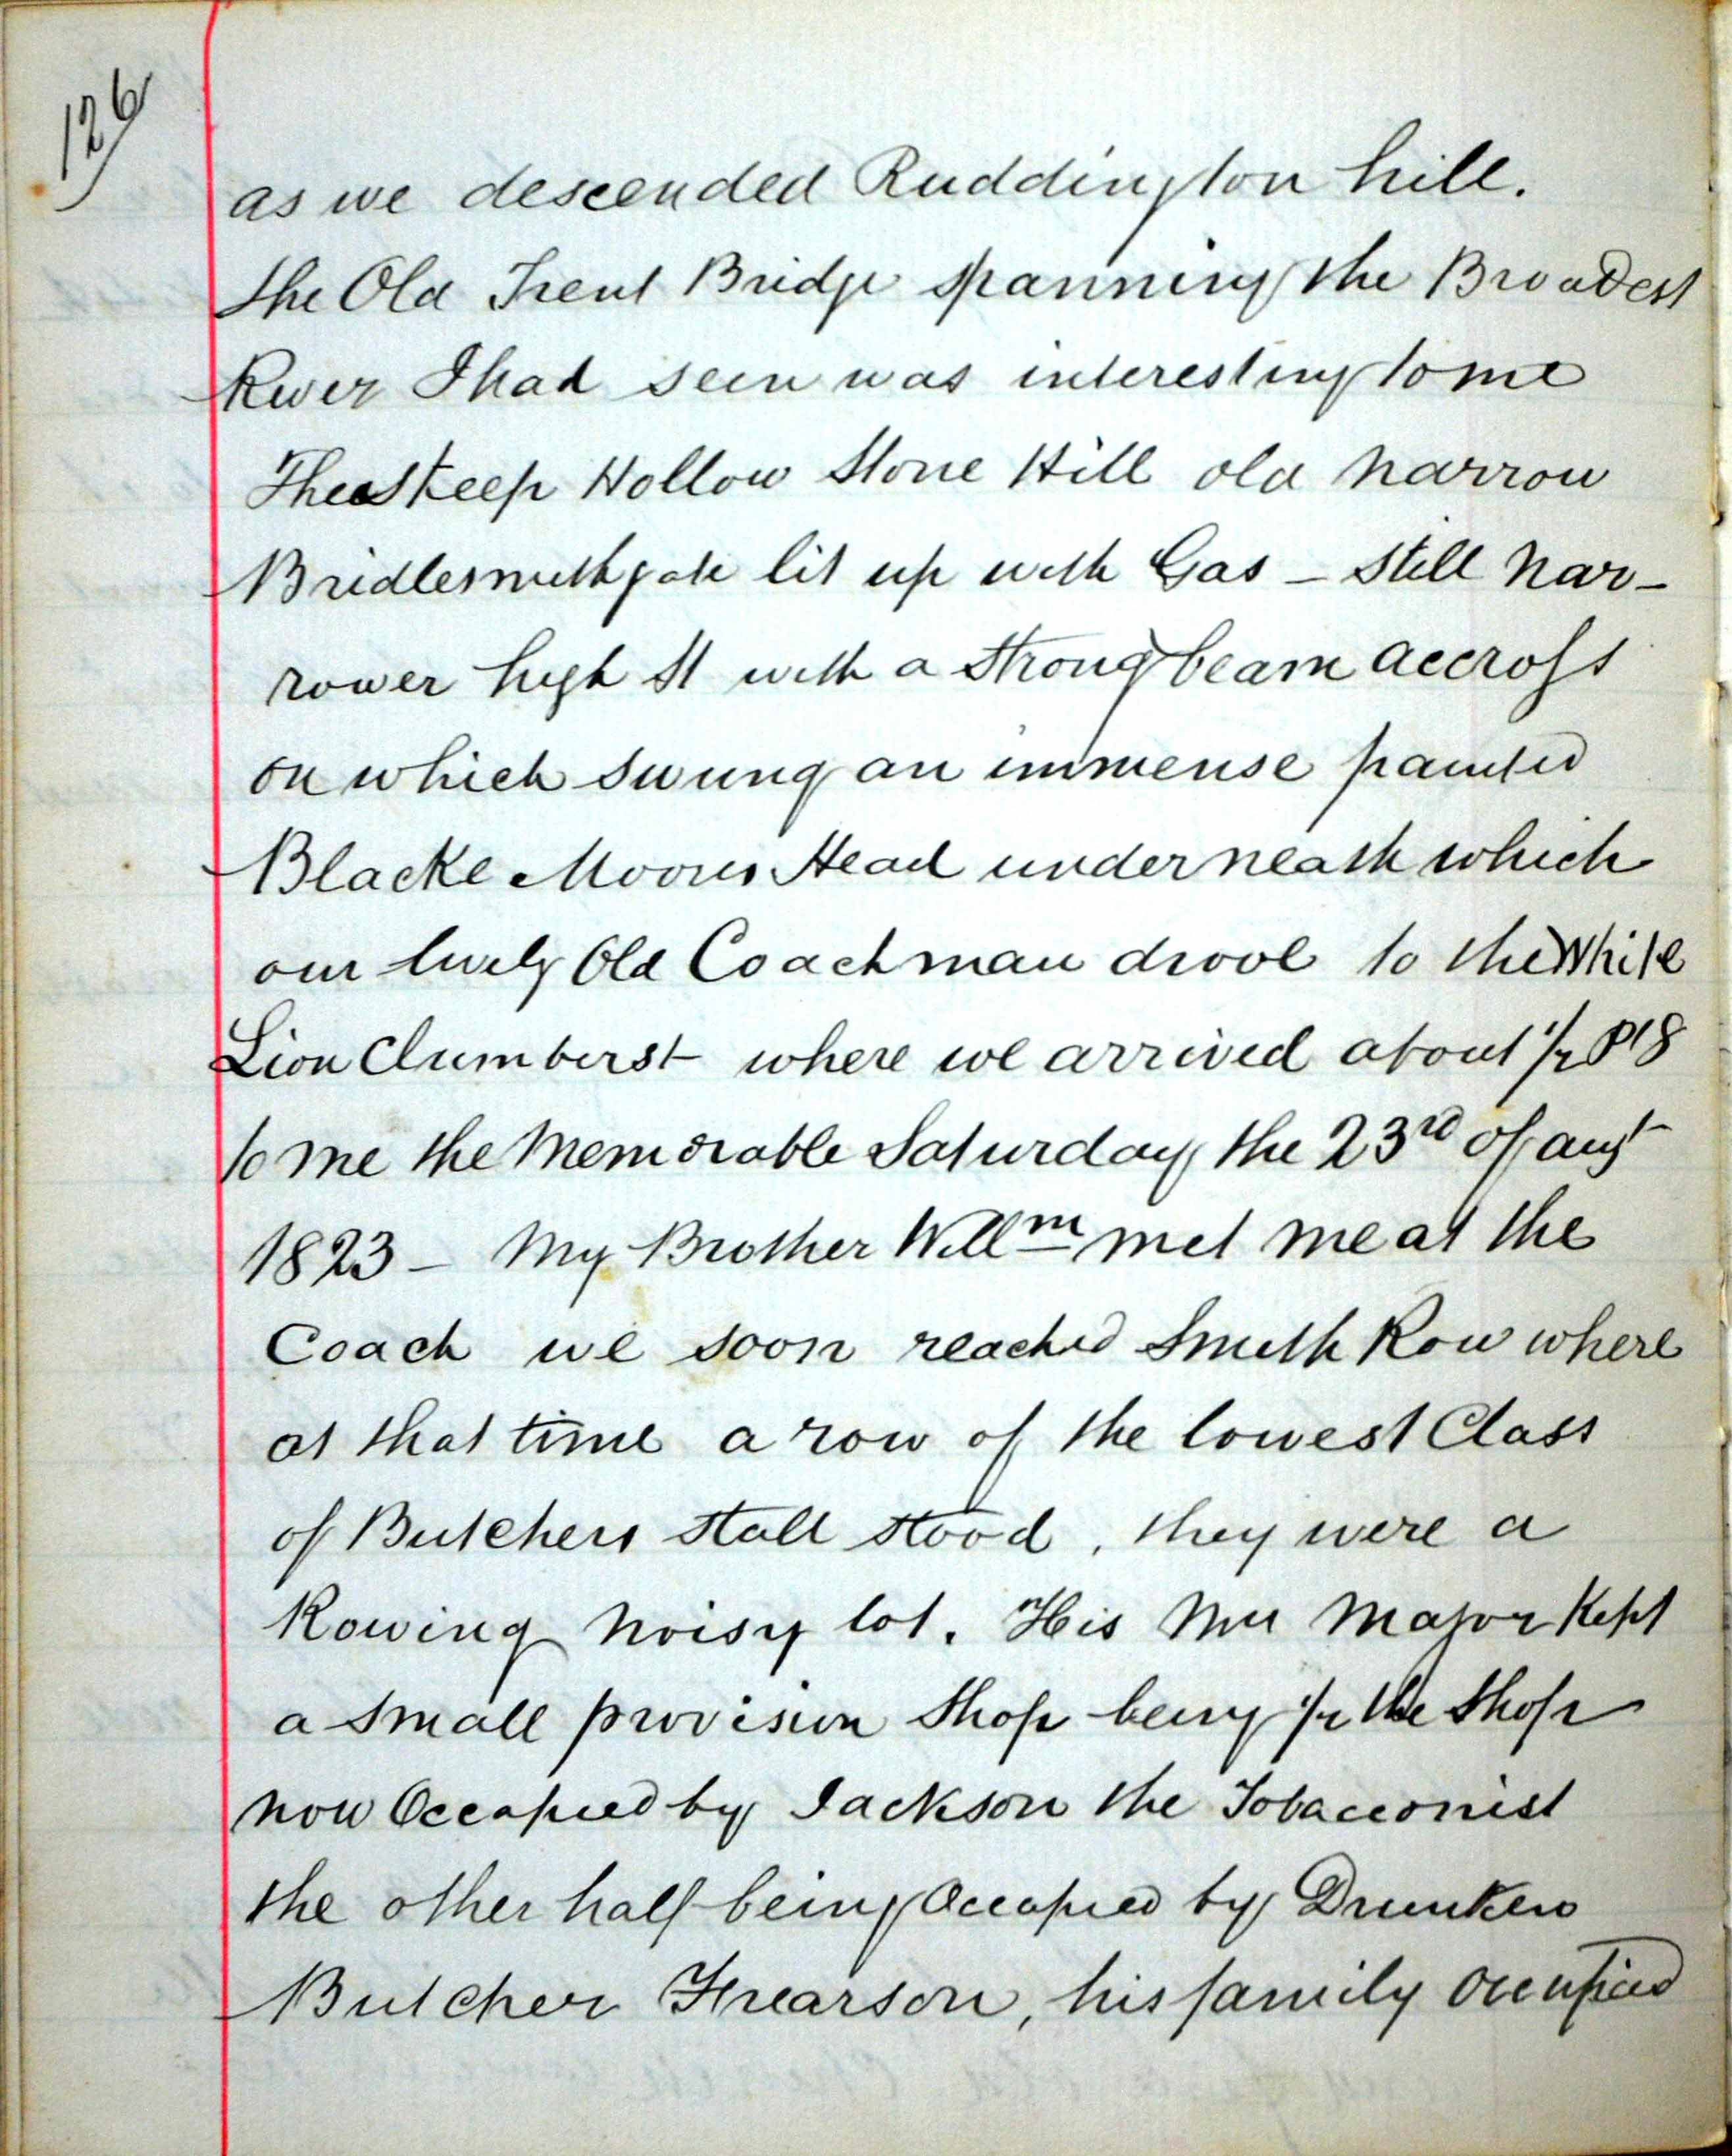 126
as we descended Ruddington hill.
the Old Trent Bridge spanning the Broadest
River I had seen was interesting to me
The Steep Hollow Stone Hill old narrow
Bridlesmithgate lit up with Gas – Still nar-
rower high St with a strong beam accross
on which swung an immense painted
Blacke Moores Head underneath which
our lively Old Coachman drove to the White
Lion Clumberst where we arrived about 1/2 Pt 8
to me the memorable Saturday the 23rd of augt
1823 – My Brother Willm met me at the
Coach we soon reached Smith Row where
at that time a row of the lowest Class
of Butchers stall stood, they were a
Rowing noisy lot. His Mr Major Kept
a small provision Shop being 1/2 the Shop
now Occupied by Jackson the Tobacconist
the other half being Occupied by Drunken
Butcher Frearson, his family occupied